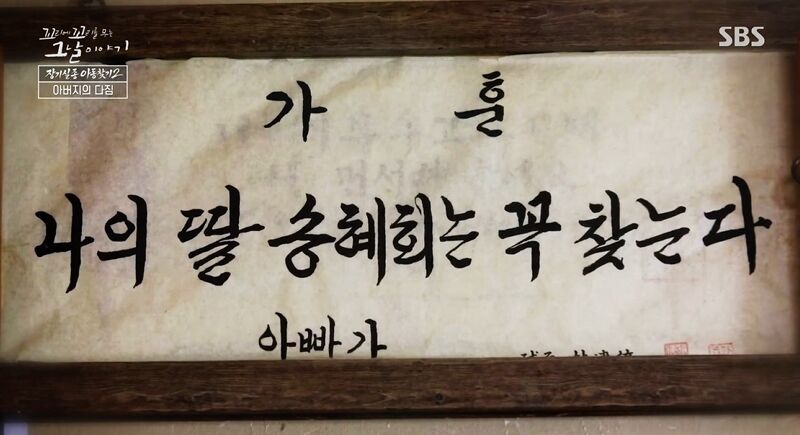 꼬리에 꼬리를 무는
그날 이야기
장기실종 아동찾기2
아버지의 다짐
SBS
가 훈
나의 딸 송혜희는 꼭 찾는다
아빠가